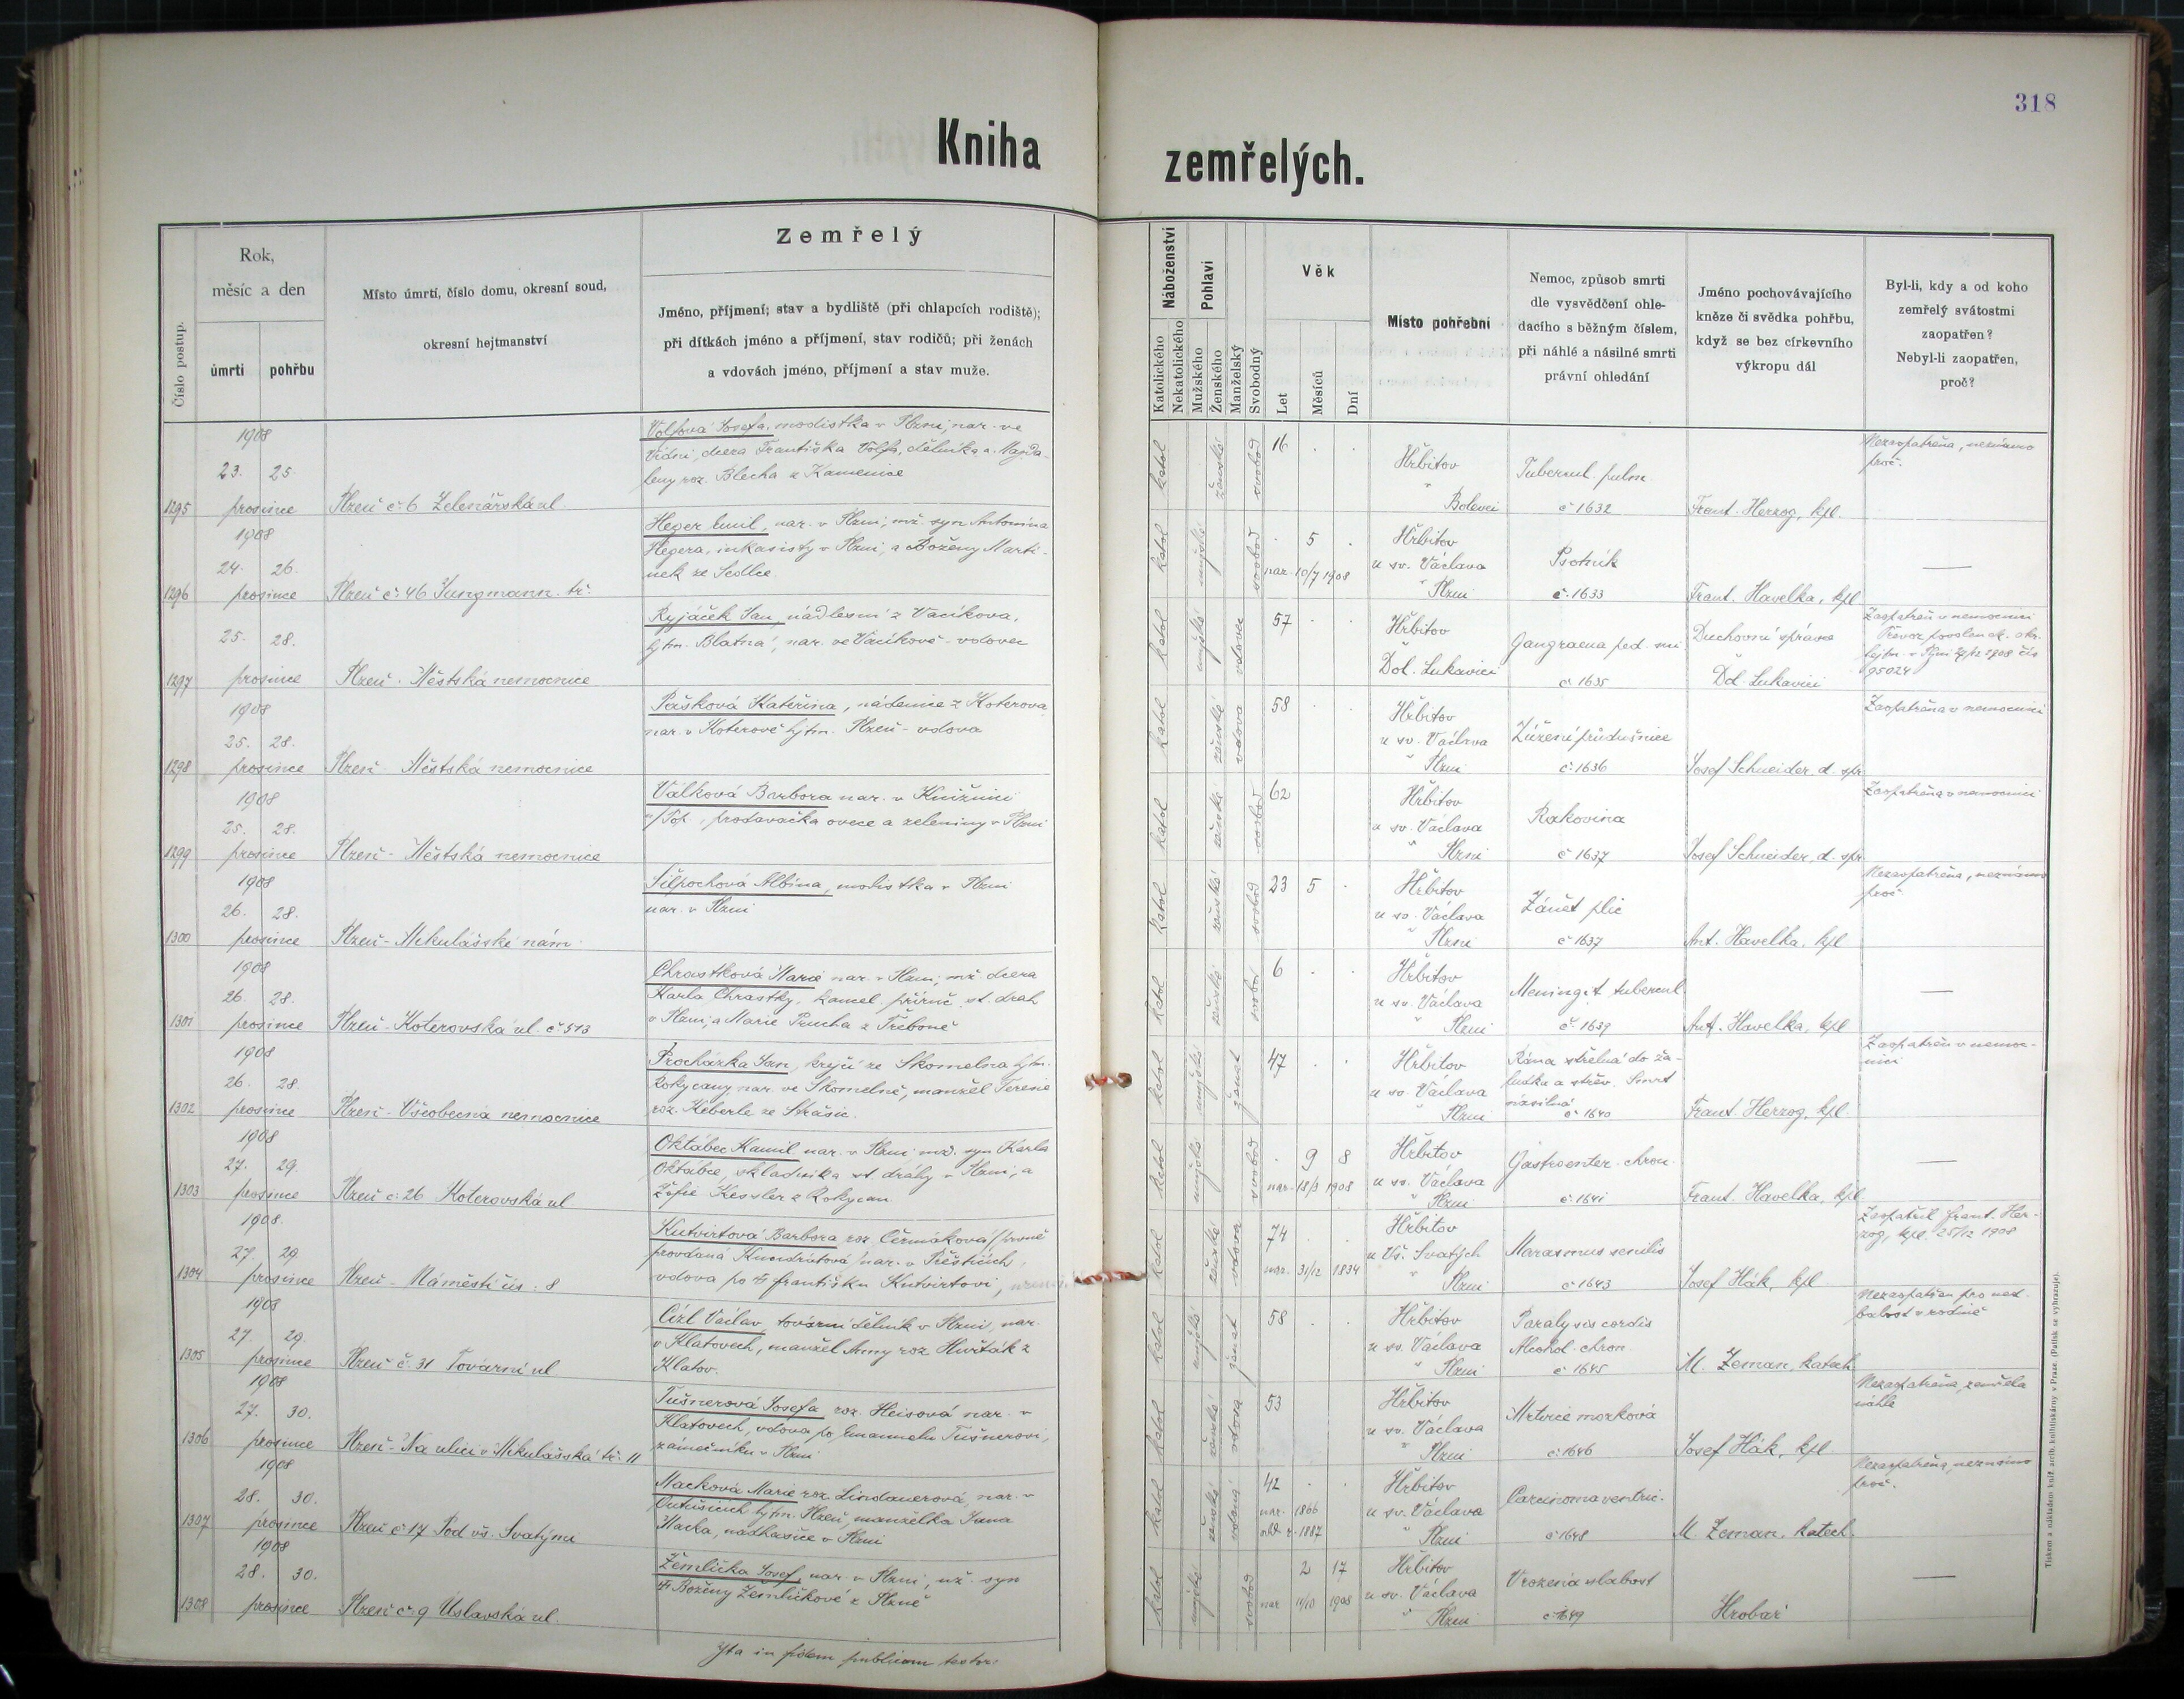 318
Kniha zemřelých.
Číslo postup.
Rok,
měsíc a den
úmrtí
pohřbu
Místo úmrtí, číslo domu, okresní soud,
okresní hejtmanství
Zemřelý
Jméno, příjmení; stav a bydliště (při chlapcích rodiště);
při dítkách jméno a příjmení, stav rodičů; při ženách
a vdovách jméno, příjmení a stav muže.
Náboženství
Katolického
Nekatolického
Pohlaví
Mužského
Ženského
Manželský
Svobodný
Věk
Let
Měsíců
Dní
Místo pohřební
Nemoc, způsob smrti
dle vysvědčení ohle-
dacího s běžným číslem,
při náhlé a násilné smrti
právní ohledání
Jméno pochovávajícího
kněze či svědka pohřbu,
když se bez církevního
výkropu dál
Byl-li, kdy a od koho
zemřelý svátostmi
zaopatřen?
Nebyl-li zaopatřen,
proč?
1295
1908
23. 25.
prosince
Plzeň č. 6 Zelenářská ul.
Volfová Josefa, modistka v Plzni, nar. ve
Vídni, dcera Františka Volfa, dělníka a Magda-
leny roz. Blecha z Kamenice
katol ženské svobod
16 . .
Hřbitov
" Bolevci
Tubercul. pulm.
č 1632
Frant. Herzog, kpl.
Nezaopatřena, neznámo
proč.
1296
1908
24. 26.
prosince
Plzeň č. 46 Jungmann. tř.
Heger Emil, nar. v Plzni, mž. syn Antonína
Hegera, inkasisty v Plzni, a Boženy Marti-
nek ze Sedlce.
katol mužské svobod
. 5 .
nar. 10/7 1908
Hřbitov
u sv. Václava
" Plzni
Psotník
č. 1633
Frant. Havelka, kpl
—
1297
25. 28.
prosince
Plzeň. Městská nemocnice
Ryjáček Jan, nádlesní z Vacíkova,
hjtm. Blatná, nar. ve Vacíkově - vdovec
katol mužské vdovec
57 . .
Hřbitov
Dol. Lukavici
Gangraena ped.
č 1635
Duchovní správce
Dol. Lukavici
Zaopatřen v nemocnici
hejtm. v Plzni 1908 čís
95024
1298
1908
25. 28.
prosince
Plzeň - Městská nemocnice
Pašková Kateřina, nádenice z Koterova
nar. v Koterově hjtm. Plzeň - vdova
katol ženské vdova
58 . .
Hřbitov
u sv. Václava
" Plzni
Zúžení průdušnice
č. 1636
Josef Schneider, d. spr
Zaopatřena v nemocnici
1299
1908
25. 28.
prosince
Plzeň - Městská nemocnice
Válková Barbora nar. v Kninici
prodavačka ovoce a zeleniny v Plzni
katol ženské svobod
62
Hřbitov
u sv. Václava
" Plzni
Rakovina
č 1637
Josef Schneider, d. spr
Zaopatřena v nemocnici
1300
1908
26. 28.
prosince
Plzeň - Mikulášské nám.
Šilpochová Albina, modistka v Plzni
nar. v Plzni
katol ženské svobod
23 5 .
Hřbitov
u sv. Václava
" Plzni
Zánět plic
č 1637
Ant. Havelka, kpl
Nezaopatřena, neznámo
proč
1301
1908
26. 28.
prosince
Plzeň - Koterovská ul. č 513
Chrastková Marie nar. v Plzni, mž dcera
Karla Chrastky, kancel. příruč. st. drah
v Plzni, a Marie Prucha z Třeboně
katol ženské svobod
6 . .
Hřbitov
u sv. Václava
" Plzni
Meningit tubercul.
č. 1639
Ant. Havelka, kpl
—
1302
1908
26. 28.
prosince
Plzeň - Všeobecná nemocnice
Procházka Jan, krejčí ze Skomelna hjtm.
Rokycany, nar. ve Skomelně, manžel Terezie
roz. Keberle ze Strašic.
katol mužské ženat
47 . .
Hřbitov
u sv. Václava
" Plzni
Rána střelná do ža-
ludka a střev. Smrt
násilná
č 1640
Frant. Herzog, kpl.
Zaopatřen v nemoc-
nici
1303
1908
27. 29.
prosince
Plzeň č. 26 Koterovská ul
Oktábec Kamil nar. v Plzni mž. syn Karla
Oktábce, skladníka st. dráhy v Plzni, a
Žofie Kessler z Rokycan.
katol mužské svobod
. 9 8
nar. 18/3 1908
Hřbitov
u sv. Václava
" Plzni
Gastroenter. chron.
č. 1641
Frant. Havelka, kpl
—
1304
1908.
27. 29.
prosince
Plzeň - Náměstí čís. 8
Kutvirtová Barbora roz. Čermáková / prvně
provdaná Kundrátová / nar. v Přešticích,
vdova po † Františku Kutvirtovi,
katol ženské vdova
74 . .
nar. 31/12 1834
Hřbitov
u Vš. Svatých
" Plzni
Marasmus senilis
č 1643
Josef Hák, kpl
Zaopatřil Frant. Her-
zog, kpl. 25/12 1908
1305
1908
27. 29.
prosince
Plzeň č. 31 Tovární ul
Cízl Václav, tovární dělník v Plzni, nar.
v Klatovech, manžel Anny roz Huřták z
Klatov.
katol mužské ženat
58 . .
Hřbitov
u sv. Václava
" Plzni
Paralysis cordis
Alcohol. chron.
č 1645
M. Zeman, katech
Nezaopatřen pro ned-
balost v rodině
1306
1908
27. 30.
prosince
Plzeň - Na ulici v Mikulášská tř. 11
Tušnerová Josefa roz. Heisová nar. v
Klatovech, vdova po Emanuelu Tušnerovi,
zámečníku v Plzni
katol ženské vdova
53
Hřbitov
u sv. Václava
" Plzni
Mrtvice mozková
č. 1646
Josef Hák, kpl.
Nezaopatřena, zemřela
náhle
1307
1908
28. 30.
prosince
Plzeň č 17 Pod vš. Svatými
Macková Marie roz. Lindauerová, nar. v
hjtm. Plzeň, manželka Jana
Macka, nadhasiče v Plzni
katol ženské vdaná
42 . .
nar. 1866
1887
Hřbitov
u sv. Václava
" Plzni
Carcinoma ventric.
č 1648
M. Zeman, katech.
Nezaopatřena, neznámo
proč.
1308
1908
28. 30.
prosince
Plzeň č. 9 Úslavská ul.
Žemlička Josef, nar. v Plzni, nž. syn
† Boženy Žemličkové z Plzně
katol mužské svobod
2 17
nar 11/10 1908
Hřbitov
u sv. Václava
" Plzni
Vrozená slabost
č 1649
Hrobař
—
Ita in fidem publicam testor:
Tiskem a nákladem kníž. arcib. knihtiskárny v Praze. (Patisk se vyhrazuje).